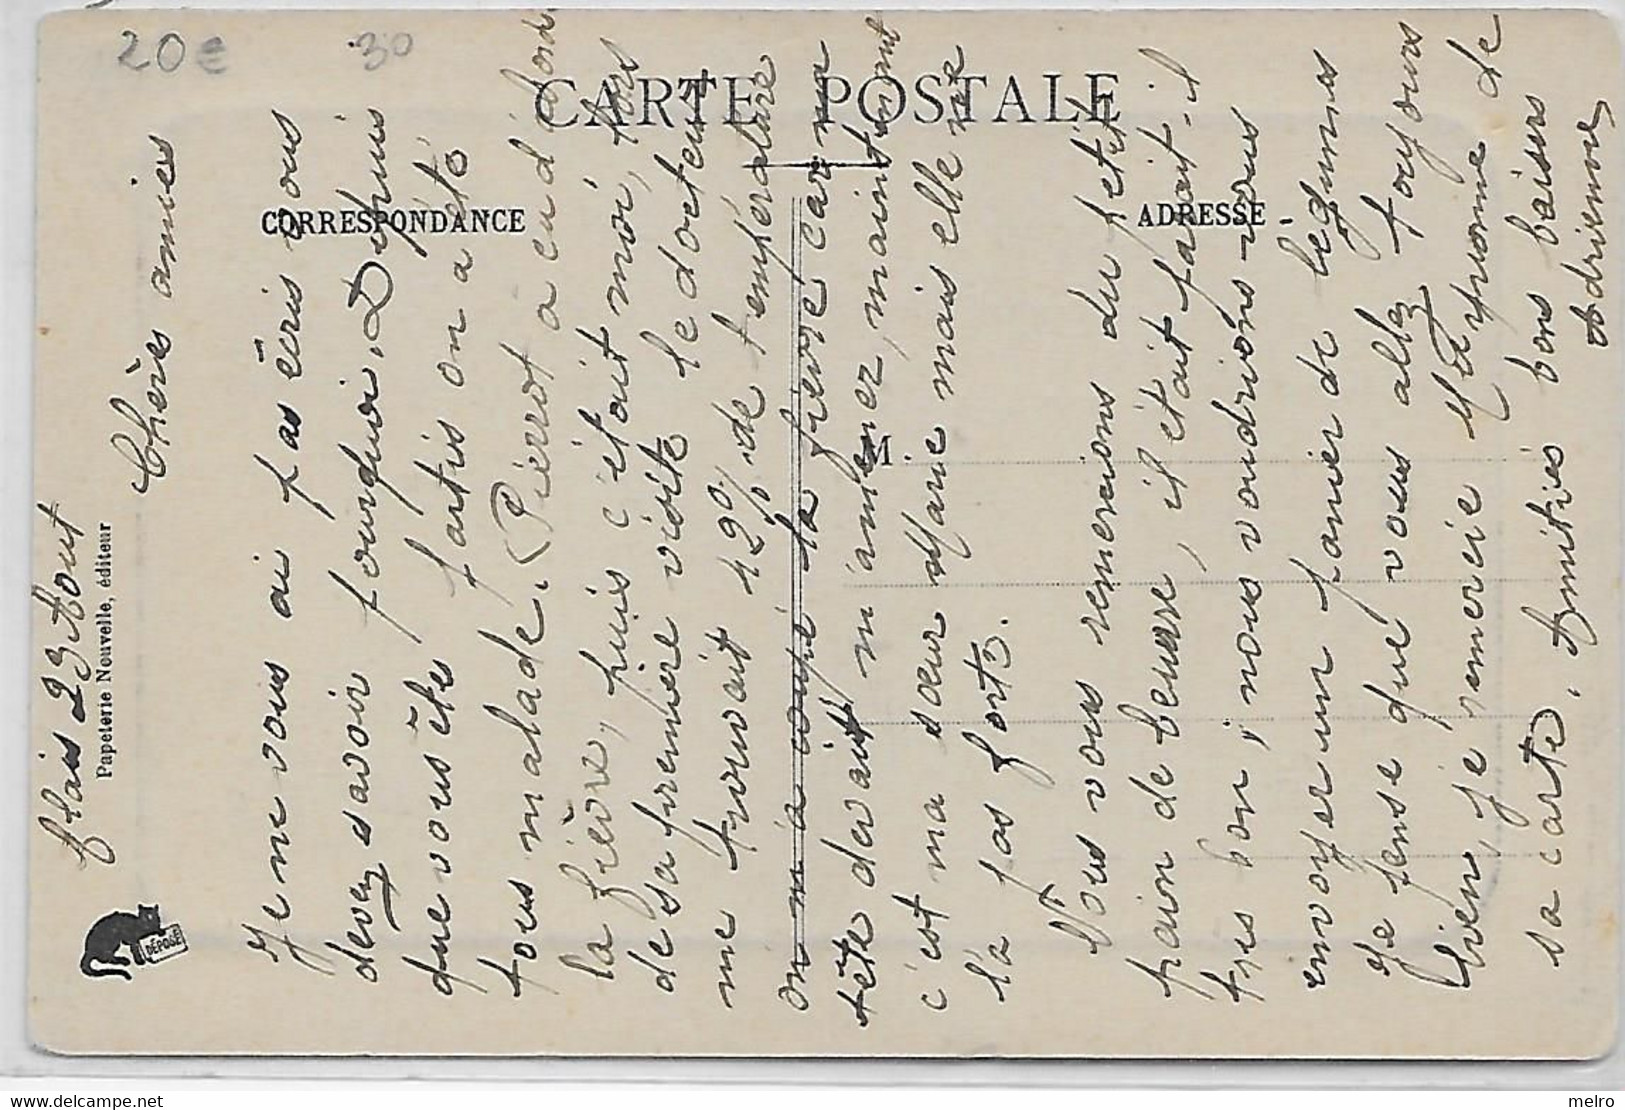 20€ 30
CARTE POSTALE
CORRESPONDANCE
ADRESSE
M
Papeterie Nouvelle, éditeur
DÉPOSÉ
Blais 23 Aout
Chères amies
Je ne vous ai pas écris vous
devez savoir pourquoi. Depuis
que vous êtes partis on a été
tous malade. (Pierrot a eu d'abord
la fièvre, puis c'était moi, lors
de sa première visite le docteur
me trouvait 42% de température
on m'a coupé la fièvre car ma
tête devait maintenant
c'est ma sœur Marie mais elle ne
l'a pas forte.
Nous vous remercions du petit
pain de beurre, il était parait-il
très bon, nous voudrions vous
envoyer un panier de légumes
Je pense que vous allez toujours
bien, je remercie Maymonne de
sa carte. Amitiés bons baisers
Adrienne
melro